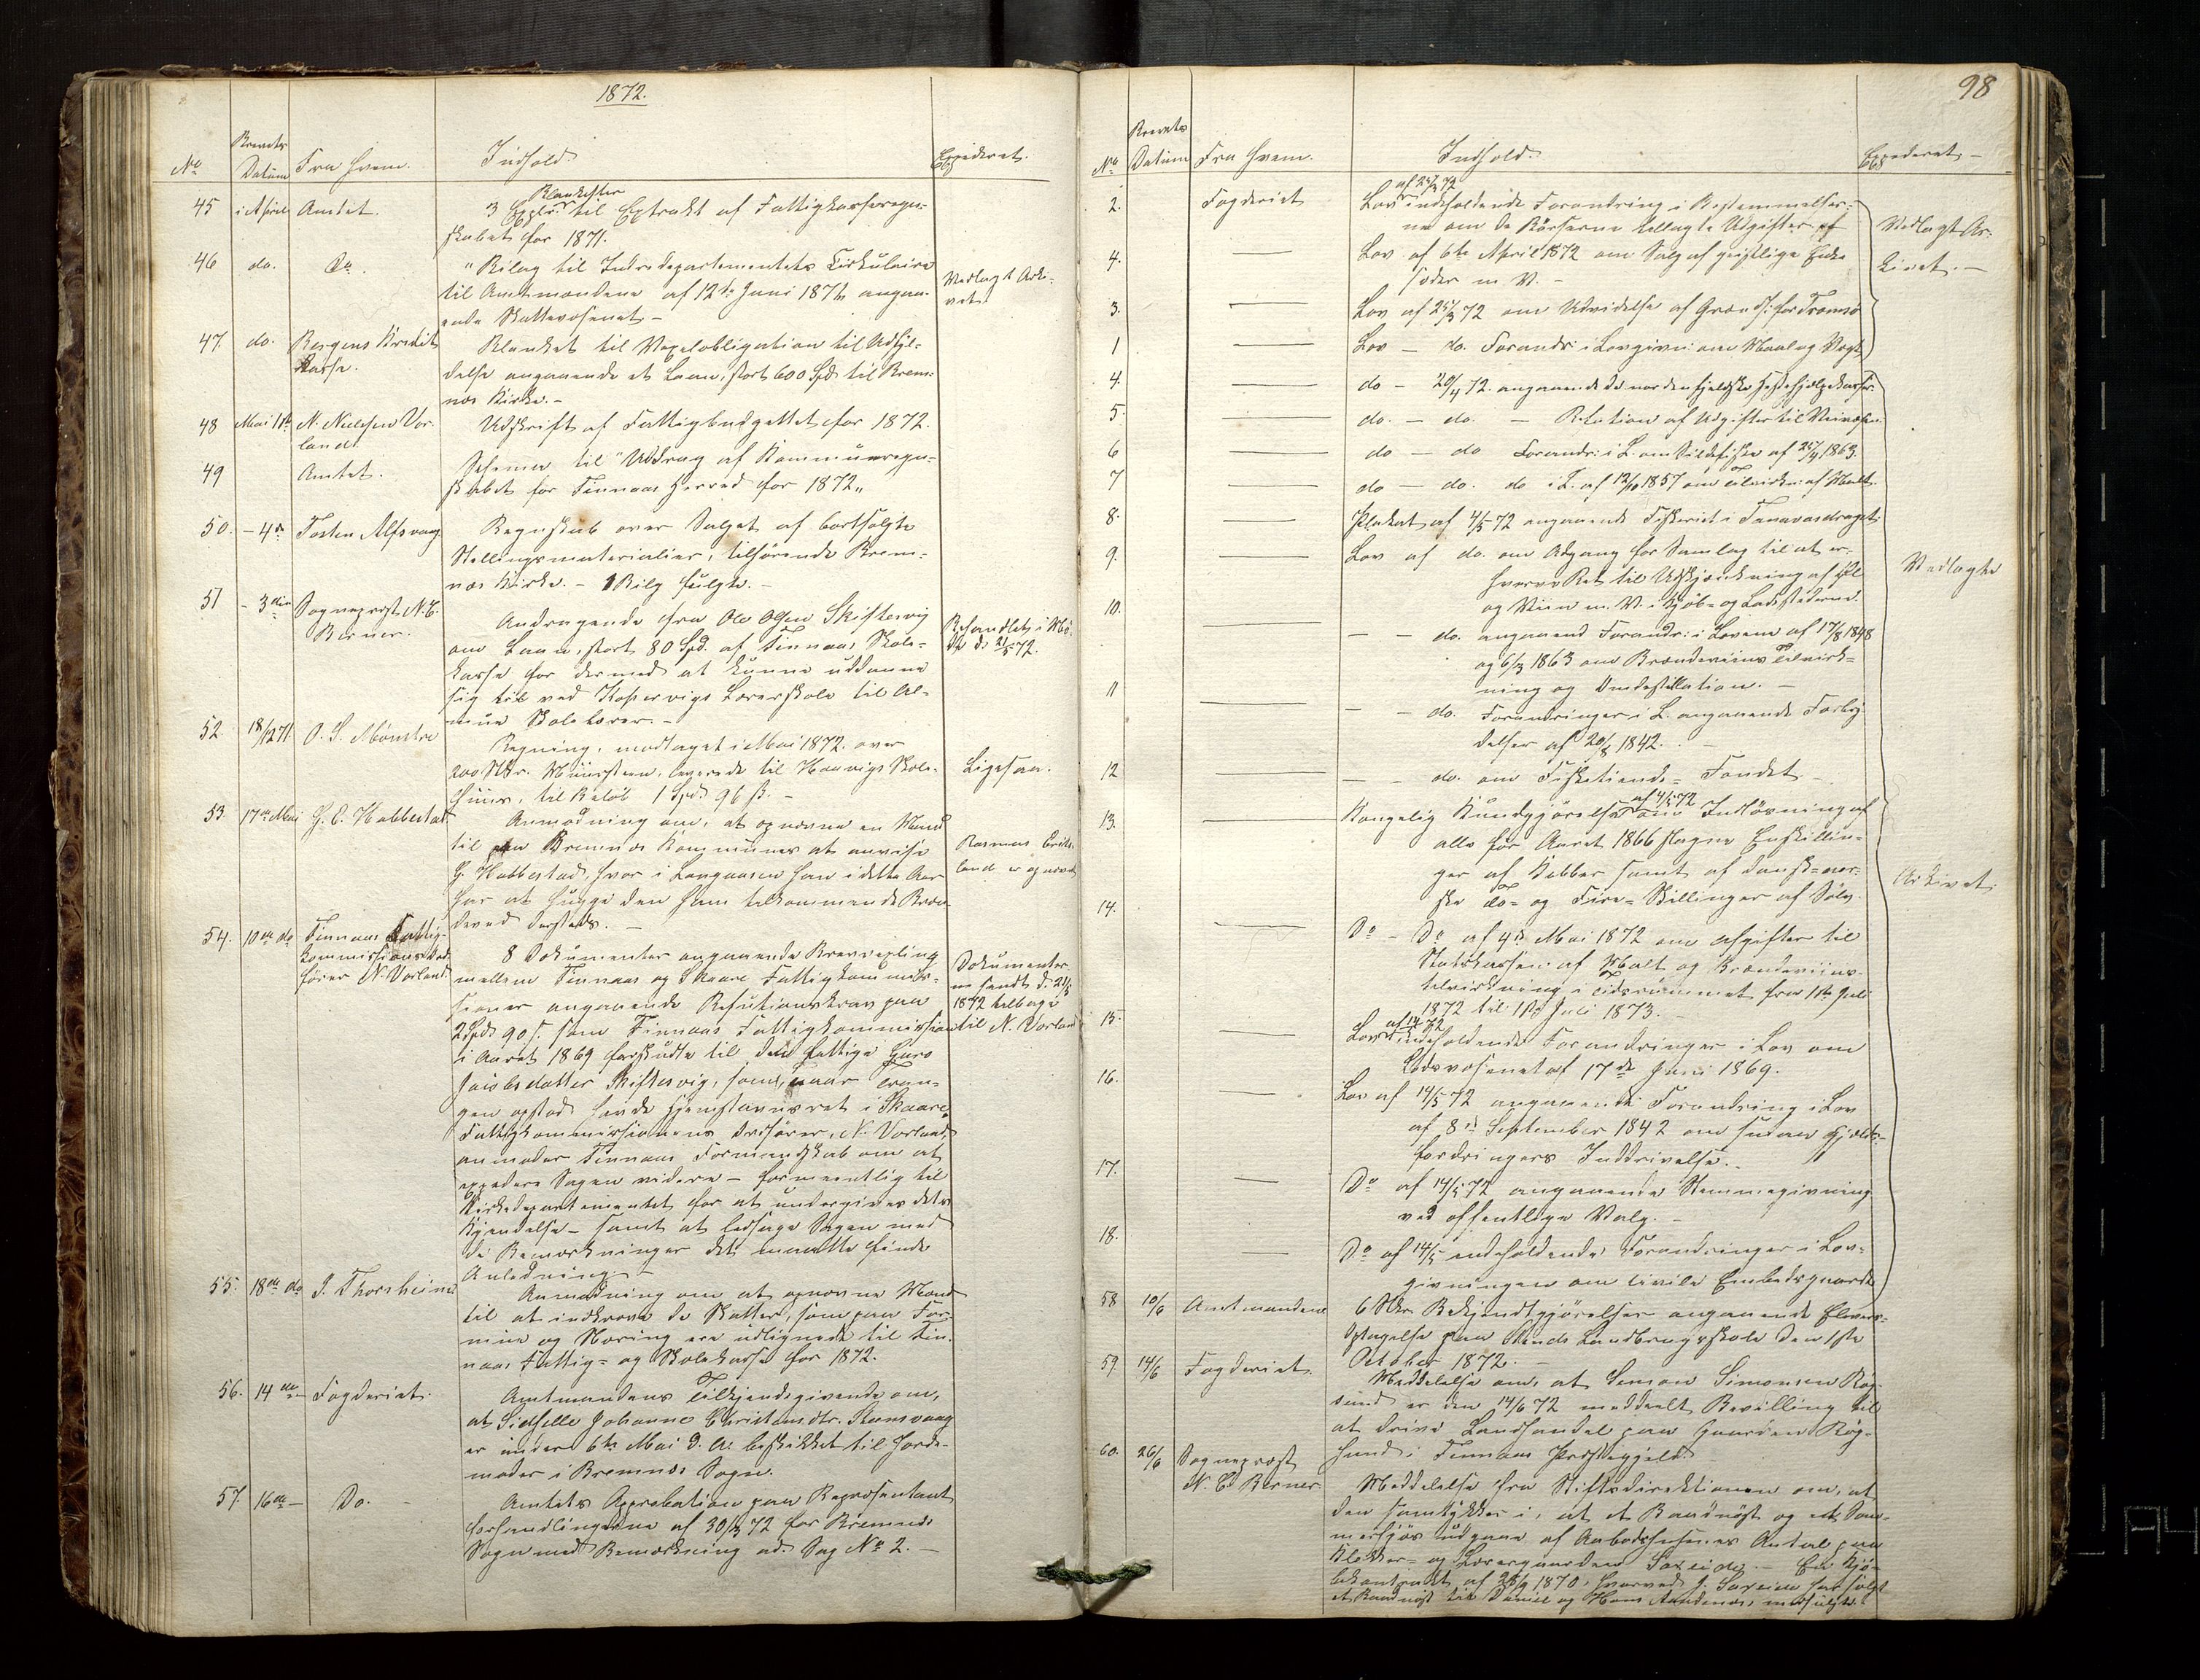 1872.
No
Brevets
Datum
Fra hvem.
Indhold.
Expederet.
45 i April Amtet.
3 Explr. Blanketter til Extrakt af Fattigkasseregn-
skabet for 1871.
46 do. Do.
"Bilag til Indredepartementets Cirkulaire
til Amtmændene af 12te Juni 1871, angaa-
ende Skattevæsenet –
Vedlagt Arki-
vet.
47. do. Bergens Kredit
Kasse.
Blanket til Vexelobligation til Udfyl-
delse angaaende et Laan, stort 600 Spd. til Brem-
næs Kirke. –
48 Mai 1ste N. Nielsen Vor-
land.
Udskrift af Fattigbudgettet for 1872.
49 Amtet.
Schema til "Uddrag af Kommuneregn-
skabet for Finnaas Herred for 1872„
50. – 4de Tosten Alfsvaag
Regnskab over Salget af bortsolgte
Stillingsmaterialier, tilhørende Brem-
næs Kirke. – 1 Bilg fulgte. –
51 – 3die Sogneprest N. E.
Berner.
Andragende fra Ole Olsen Skiftesvig
om Laan, stort 80 Spd. af Finnaas Skole-
kasse for dermed at kunne uddanne
sig til ved Kopervigs Lærerskole til Al-
mue Skolelærer. –
Behandlet i Mø-
de d. 21/5 72.
52. 18/12 71. O. S. Mønstre
Regning, modtaget i Mai 1872. over
200 Stkr. Muursteen, leverede til Haavigs Skole-
huus, til Beløb 1 Spd. 96 ß. –
Ligesaa.
53. 17de Mai G. E. Habbestad
Anmodning om, at opnævne en Mand
til paa Bremnæs Kommunes at anvise
G. Habbestad, hvor i Langaasen han i dette Aar
har at hugge den ham tilkommende Bræn-
deved dersteds. –
Rasmus
land er opnævnt
54. 10de do Finnaas Fattig-
kommissions Ord-
fører N. Vorland.
8 Dokumenter angaaende Brevvexling
mellem Finnaas og Skaare Fattigkommis-
sioner angaaende Refusionskrav paa
2 Spd. 90 ß. som Finnaas Fattigkommission
i Aaret 1869 forskudte til den fattige Guro
Jacobsdatter Skiftesvig, som, naar Tran-
gen opstod havde Hjemstavnsret i Skaare.
Fattigkommissionens Ordfører, N. Vorland,
anmoder Finnaas Formandskab om at
expedere Sagen videre – formeentlig til
Kirkedepartementet for at undergives dets
Kjendelse – samt at ledsage Sagen med
de Bemærkninger det maatte finde
Anledning. –
Dokumenter-
ne sendt d. 21/5
1872 tilbage
til N. Vorland
55. 18de do J. Thorsheim
Anmodning om at opnævne Mand
til at indkræve de Skatter, som paa For-
mue og Næring ere udlignede til Fin-
naas Fattig- og Skolekasse for 1872.
56. 14de – Fogderiet.
Amtmandens Tilkjendegivende om,
at Sidselle Johanne Christensdtr. Steensvaag
er under 6te Mai d. A. beskikket til Jorde-
moder i Bremnæs Sogn.
57. 16de – Do. –
Amtets Approbation paa Repræsentant-
forhandlingerne af 30/3 72 for Bremnæs
Sogn med Bemærkning ad. Sag No 2. –
98
No
Brevets
Datum
Fra hvem.
Indhold.
Expederet –
2. Fogderiet
Lov af 25/3 72 indeholdende Forandring i Bestemmelser-
ne om de Børserne tillagte Udgifter af
4. Lov af 6te April 1872 om Salg af geistlige Enke-
sæder m. V. –
3. Lov af 25/3 72 om Udvidelse af Grænds. for Tromsø
1 Lov – do. Forandr. i Lovgivn. om Maal og Vægt
Vedlagt Ar-
kivet. –
4. do – 20/4 72. angaaende de nordenfjeldske Hestehjælpskasser.
5. do. – do. – Relation af Udgifter til Veivæsen.
6 do – do Forandr. i L. om Sildefiske af 25/4 1863.
7 do – do. do i L. af 12/10 1857 om Tilvirkn. af Malt.
8. Plakat af 4/5 72 angaaende Fiskeriet i Tanavasdraget.
9. Lov af do. om Adgang for Samlag til at er-
hverve Ret til Udskjænkning af Øl
og Viin m. V. i Kjøb- og Ladestederne.
Vedlagte
10. – – do. angaaend Forandr. i Lovene af 17/8 1848
og 6/3 1863 om Brændeviins Tilvirk-
ning og Omdestillation. –
11 – – do. Forandringer i L. angaaende Forby-
delser af 20/8 1842. –
12 – – do. om Fisketiende-Fondet –
13. Kongelig Kundgjørelse af 4/5 72 om Indløsning af
alle før Aaret 1866 slagne Enskillin-
ger af Kobber samt af dansk-nor-
ske To- og Fire-Skillinger af Sølv.
Arkivet.
14. Do – Do af 4de Mai 1872 om Afgifter til
Statskassen af Malt og Brændeviins-
tilvirkning i Tidsrummet fra 1ste Juli
1872 til 1ste Juli 1873. –
15. Lov af 14/5 72 indeholdende Forandringer i Lov om
Lodsvæsenet af 17de Juni 1869.
16. Lov af 14/5 72 angaaende Forandring i Lov
af 8de September 1842 om smaae Gjælds-
fordringers Inddrivelse. –
17. Do af 14/5 72 angaaende Stemmegivning
ved offentlige Valg. –
18. Do af 14/5 indeholdende Forandringer i Lov-
givningen om civile Embedsgaarde
58 10/6 Amtmanden
6 Stkr. Bekjendtgjørelser angaaende Elevers
Optagelse paa Lands Landbrugsskole den 1ste
October 1872. –
59. 14/6 Fogderiet.
Meddelelse om, at Simon Simonsen Røg-
sund er den 14/6 72 meddeelt Bevilling til
at drive Landhandel paa Gaarden Røg-
sund i Finnaas Præstegjeld.
60. 26/6 Sogneprest
N. E. Berner
Meddelelse fra Stiftsdirektionen om, at
den samtykker i, at et Baadnøst og et Som-
merfjøs udgaar af Aabodshusenes Antal paa
Klokker- og Lærergaarden Sexeide. – En Kjø-
bekontrakt af 28/9 1870, hvorved J. Sexeim har solgt
et Baadnøst til Daniel og Hans medfulgte.